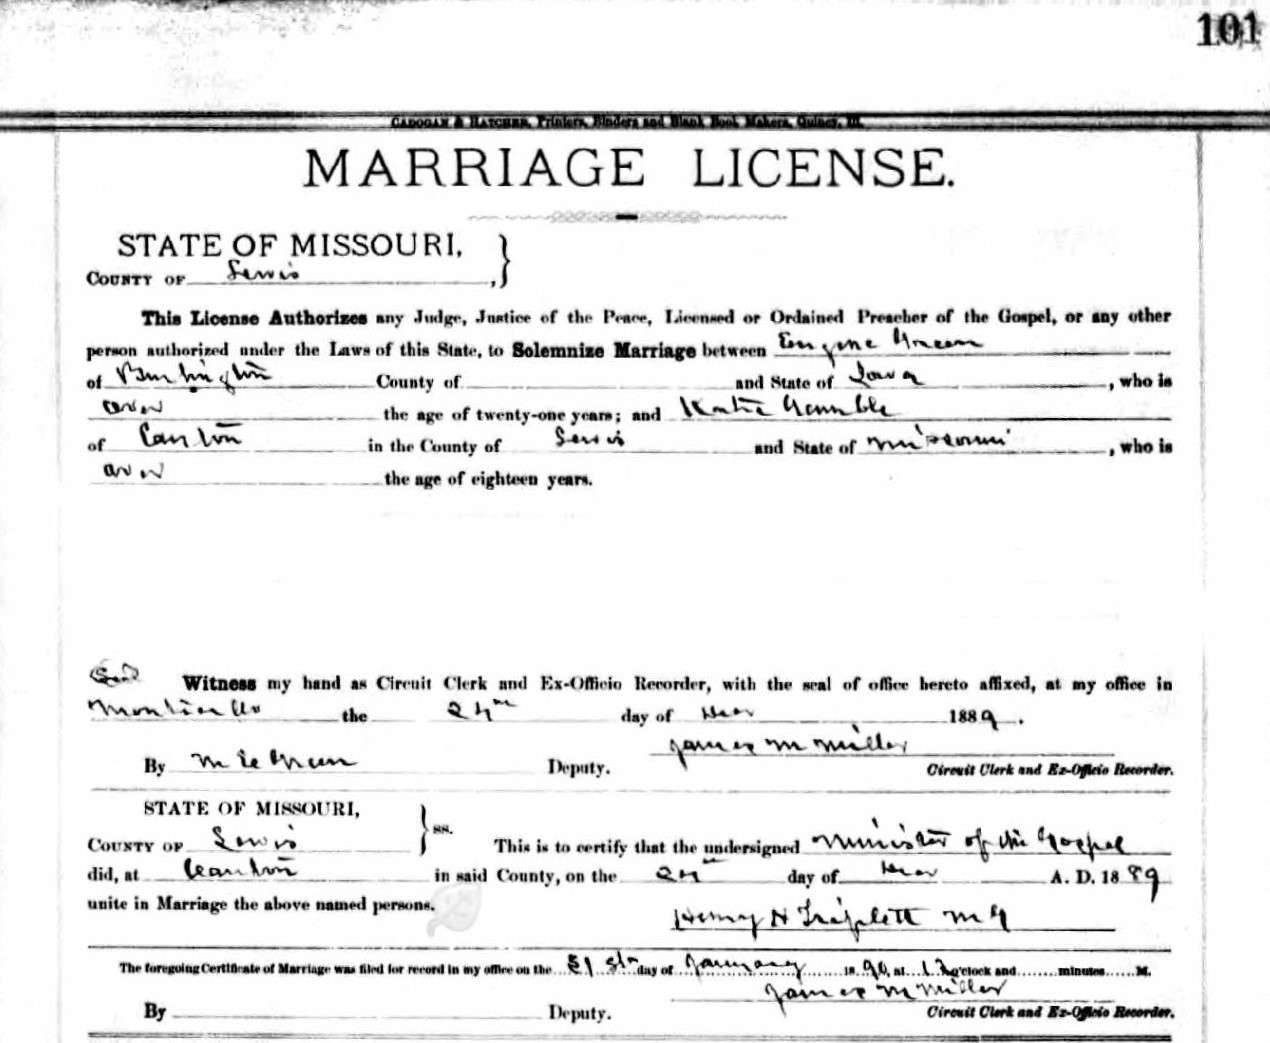 101
CADOGAN & HATCHER, Printers, Binders and Blank Book Makers, Quincy, Ill.
MARRIAGE LICENSE.
STATE OF MISSOURI,
COUNTY OF Lewis ,
This License Authorizes any Judge, Justice of the Peace, Licensed or Ordained Preacher of the Gospel, or any other
person authorized under the Laws of this State, to Solemnize Marriage between Eugene Green
of Burlington County of and State of Iowa , who is
over the age of twenty-one years; and Katie Gamble
of Canton in the County of Lewis and State of Missouri , who is
over the age of eighteen years.
Seal Witness my hand as Circuit Clerk and Ex-Officio Recorder, with the seal of office hereto affixed, at my office in
Monticello the day of 1889 .
James M Miller
By Deputy. Circuit Clerk and Ex-Officio Recorder.
STATE OF MISSOURI,
COUNTY OF Lewis ss. This is to certify that the undersigned Minister of the Gospel
did, at Canton in said County, on the day of A. D. 1889
unite in Marriage the above named persons.
Henry H Triplett M G
The foregoing Certificate of Marriage was filed for record in my office on the day of January 1890, at o'clock and minutes M.
James M Miller
By Deputy. Circuit Clerk and Ex-Officio Recorder.